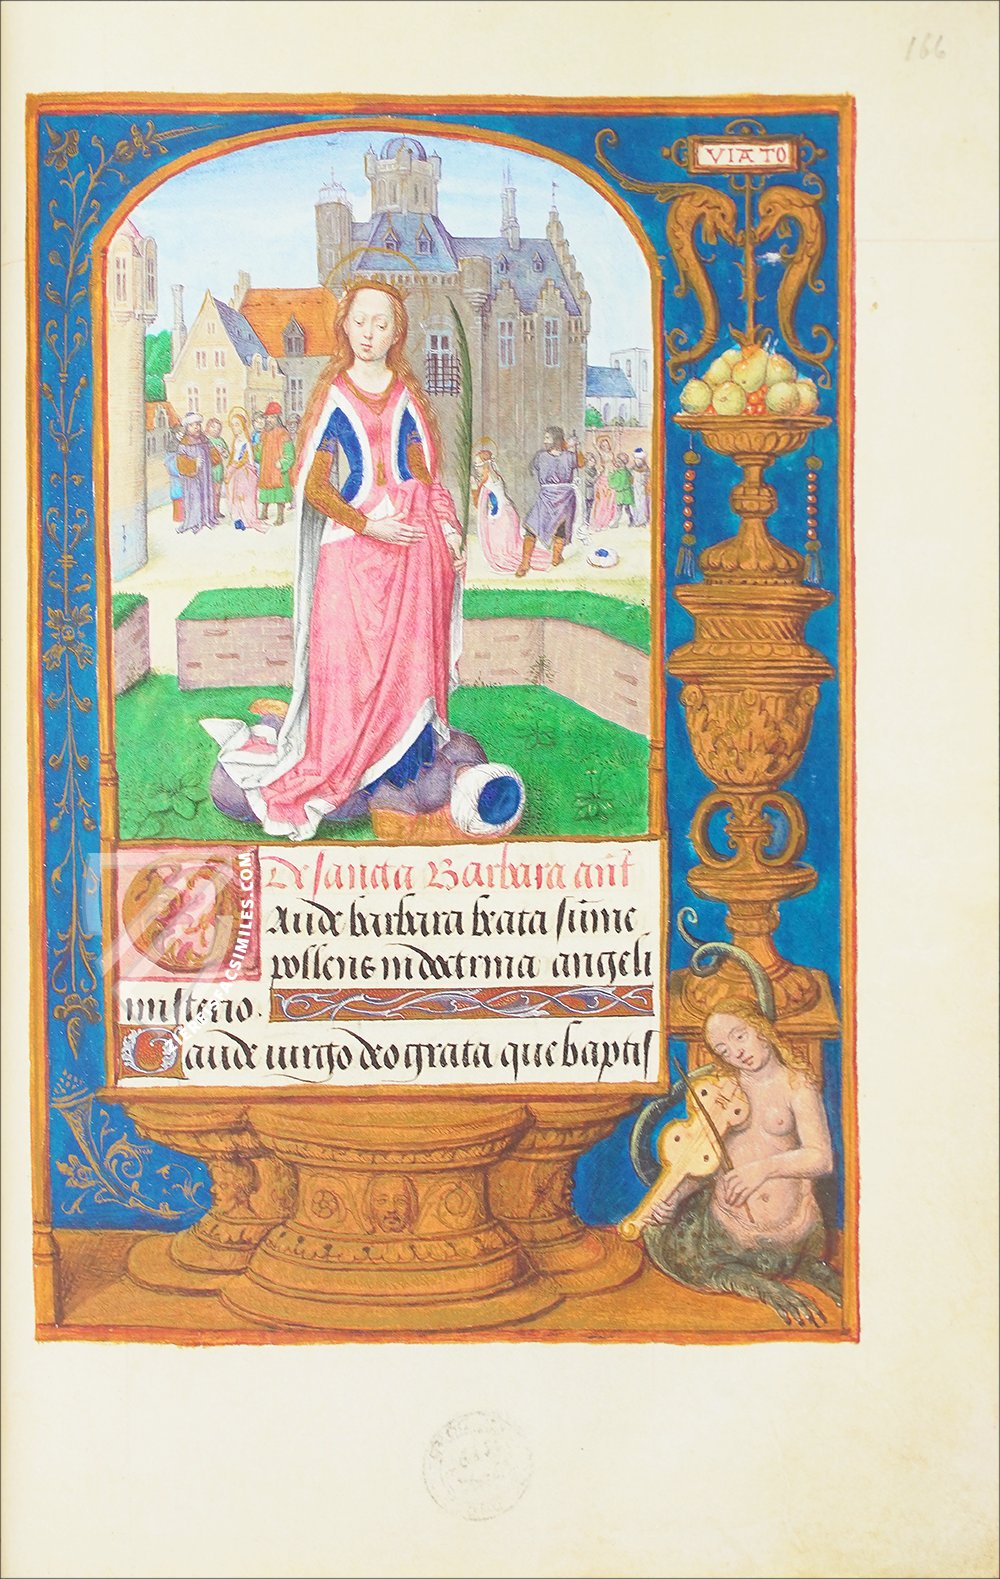 166
VIATO
De sancta Barbara añt
Aude barbara beata sũme
pollens in doctrina angeli
misterio.
Gaude uirgo deo grata que baptis
ZIEREIS FACSIMILES.COM